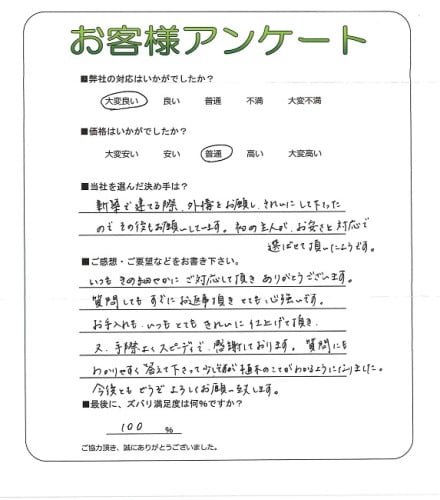 お客様アンケート
■弊社の対応はいかがでしたか?
大変良い 良い 普通 不満 大変不満
■価格はいかがでしたか?
大変安い 安い 普通 高い 大変高い
■当社を選んだ決め手は?
新築で建てる際、外構をお願いし、きれいにして下さった
のでその後もお願いしています。初の主人が、お安さと対応で
選ばせて頂いたようです。
■ご感想・ご要望などをお書き下さい。
いつもきめ細やかにご対応して頂きありがとうございます。
質問してもすぐにお返事頂きとても心強いです。
お手入れも、いつもとてもきれいに仕上げて頂き、
又、手際よくスピーディで、感謝しております。質問にも
わかりやすく答えて下さって少しずつ植木のことがわかるようになりました。
今後ともどうぞよろしくお願い致します。
■最後に、ズバリ満足度は何%ですか?
100 %
ご協力頂き、誠にありがとうございました。